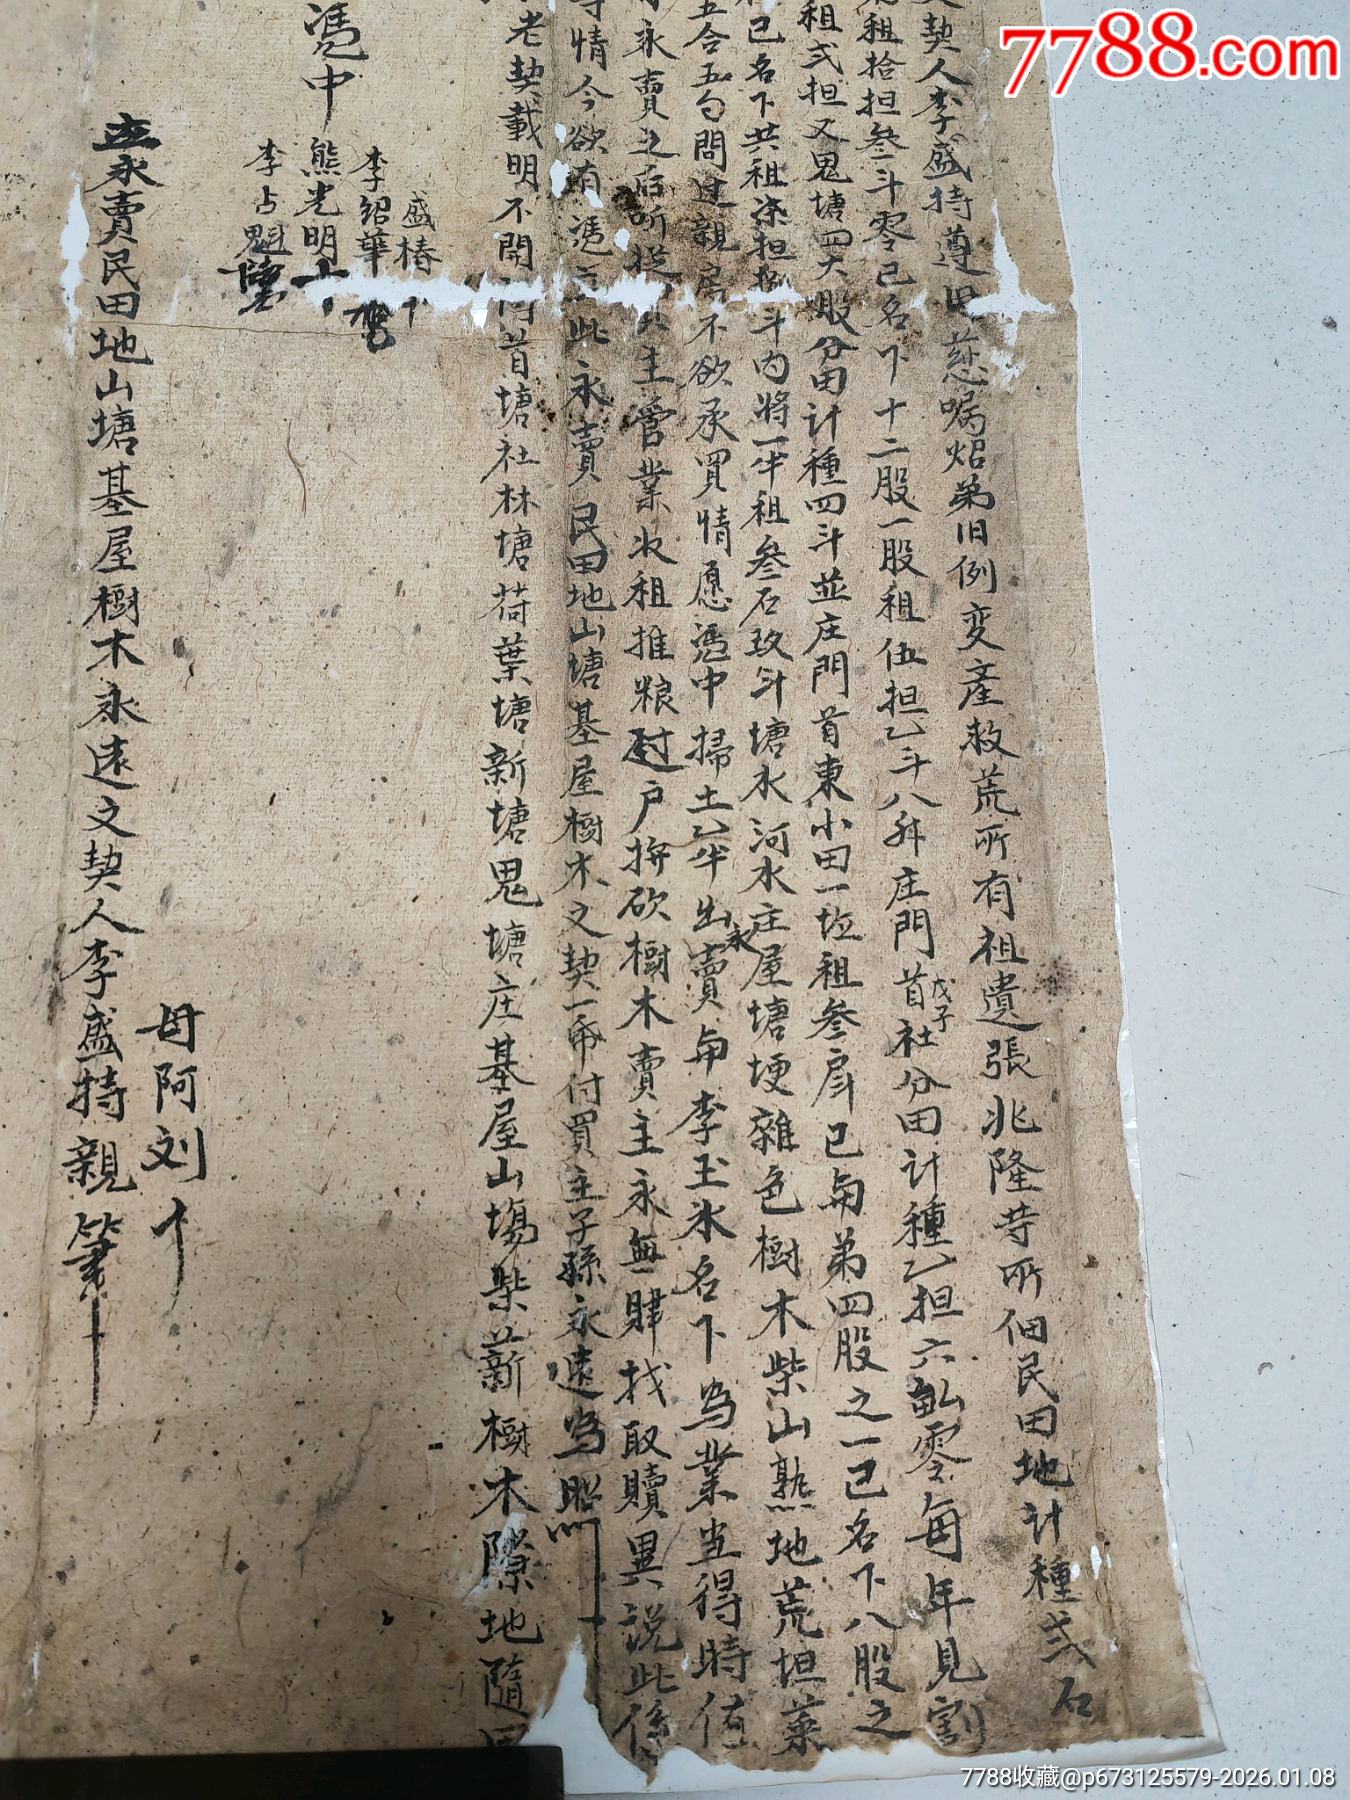 7788.com
文契人李盛持遵田慈嘱炤弟旧例変産救荒所有祖遺張兆隆等所佃民田地計種弍石
租拾担叁斗零已名下十二股一股租伍担乙斗八升庄門首社戊子分田計種乙担六畝零每年見割
租弍担又鬼塘四大股分田計種四斗並庄門首東小田一坵租叁斛已與弟四股之一已名下八股之
已名下共租柒担捌斗内將一半租叁石玖斗塘水河水庄屋塘埂雜色樹木柴山熟地荒坦菜
五合五勺問过親房不欲承買情愿憑中掃土乙半出永賣與李玉氷名下為業当得時值
永賣之后听從買主管業收租推粮过户拚砍樹木賣主永無肆找取贖異説此係
等情今欲有憑立此永賣民田地山塘基屋樹木文契一帋付買主子孫永遠為照
老契載明不開門首塘社林塘荷葉塘新塘鬼塘庄基屋山塲柴薪樹木隙地隨田
盛椿十
李紹華
憑中熊光明十
李占魁
母阿刘个
立永賣民田地山塘基屋樹木永遠文契人李盛持親筆
7788收藏@p673125579-2026.01.08